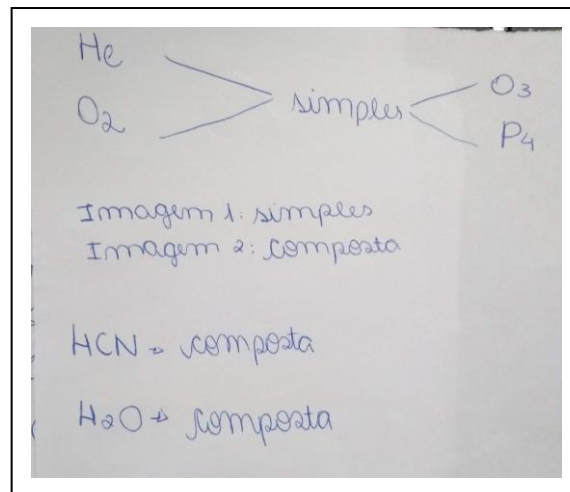 He
O2
simples
O3
P4
Imagem 1: simples
Imagem 2: composta
HCN → composta
H2O → composta